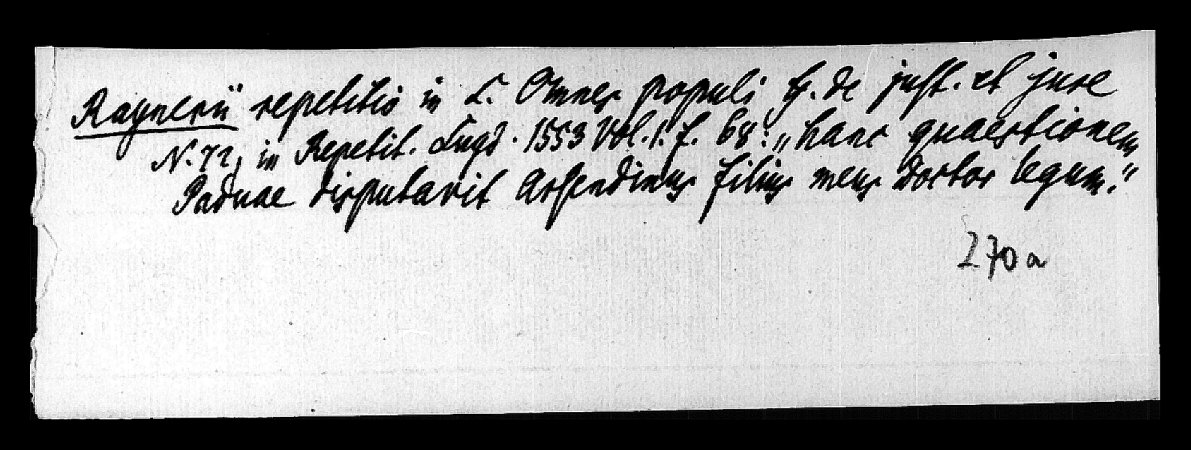 Raynerii repetitio in L. Omnes populi ff. de just. et jure
N. 72, in Repetit. Lugd. 1553 Vol. 1. f. 68: „hanc quaestionem
Paduae disputavit Arsendinus filius meus doctor legum."
270a